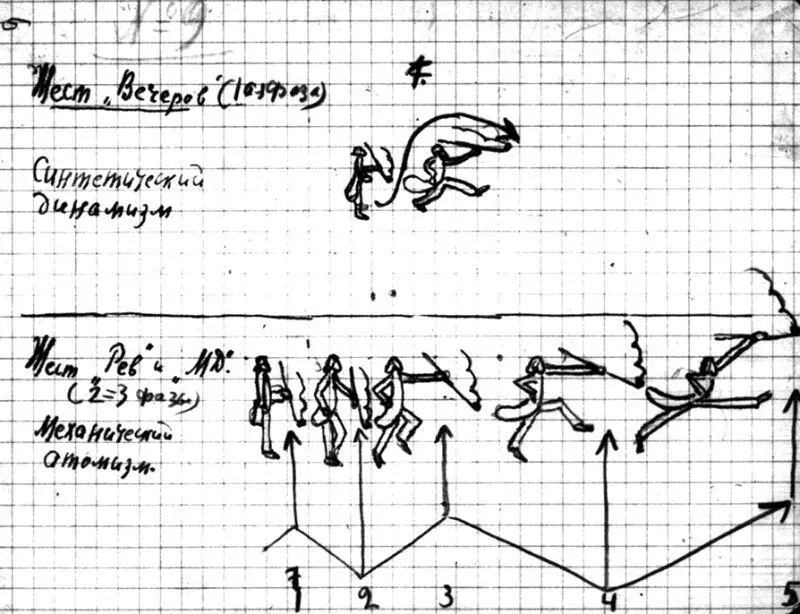 № 9
Жест „Вечеров" (1ая фаза)
Синтетический
динамизм
Жест „Рев" и „МД".
(2=3 фазы)
Механический
атомизм.
1 2 3 4 5